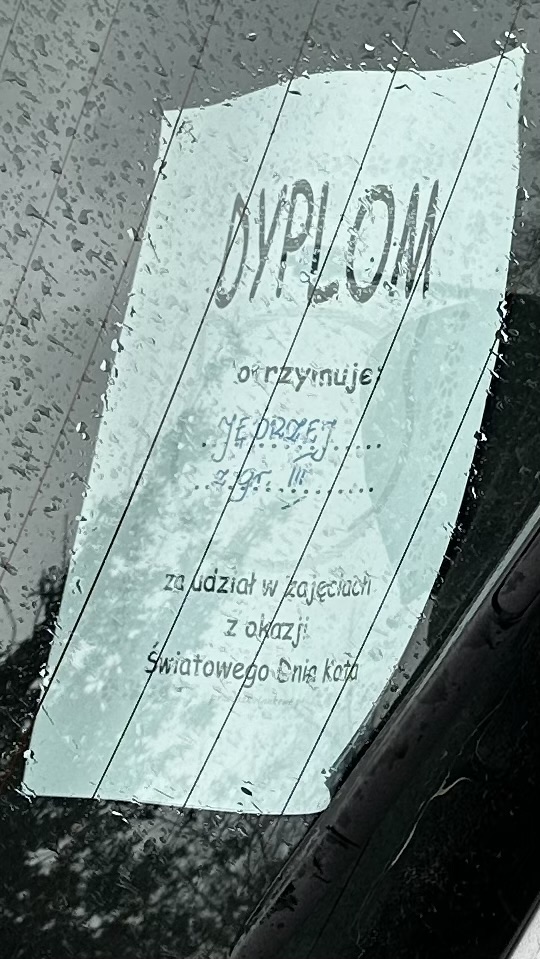 DYPLOM
otrzymuje:
JĘDRZEJ
z gr. III
za udział w zajęciach
z okazji
Światowego Dnia Kota